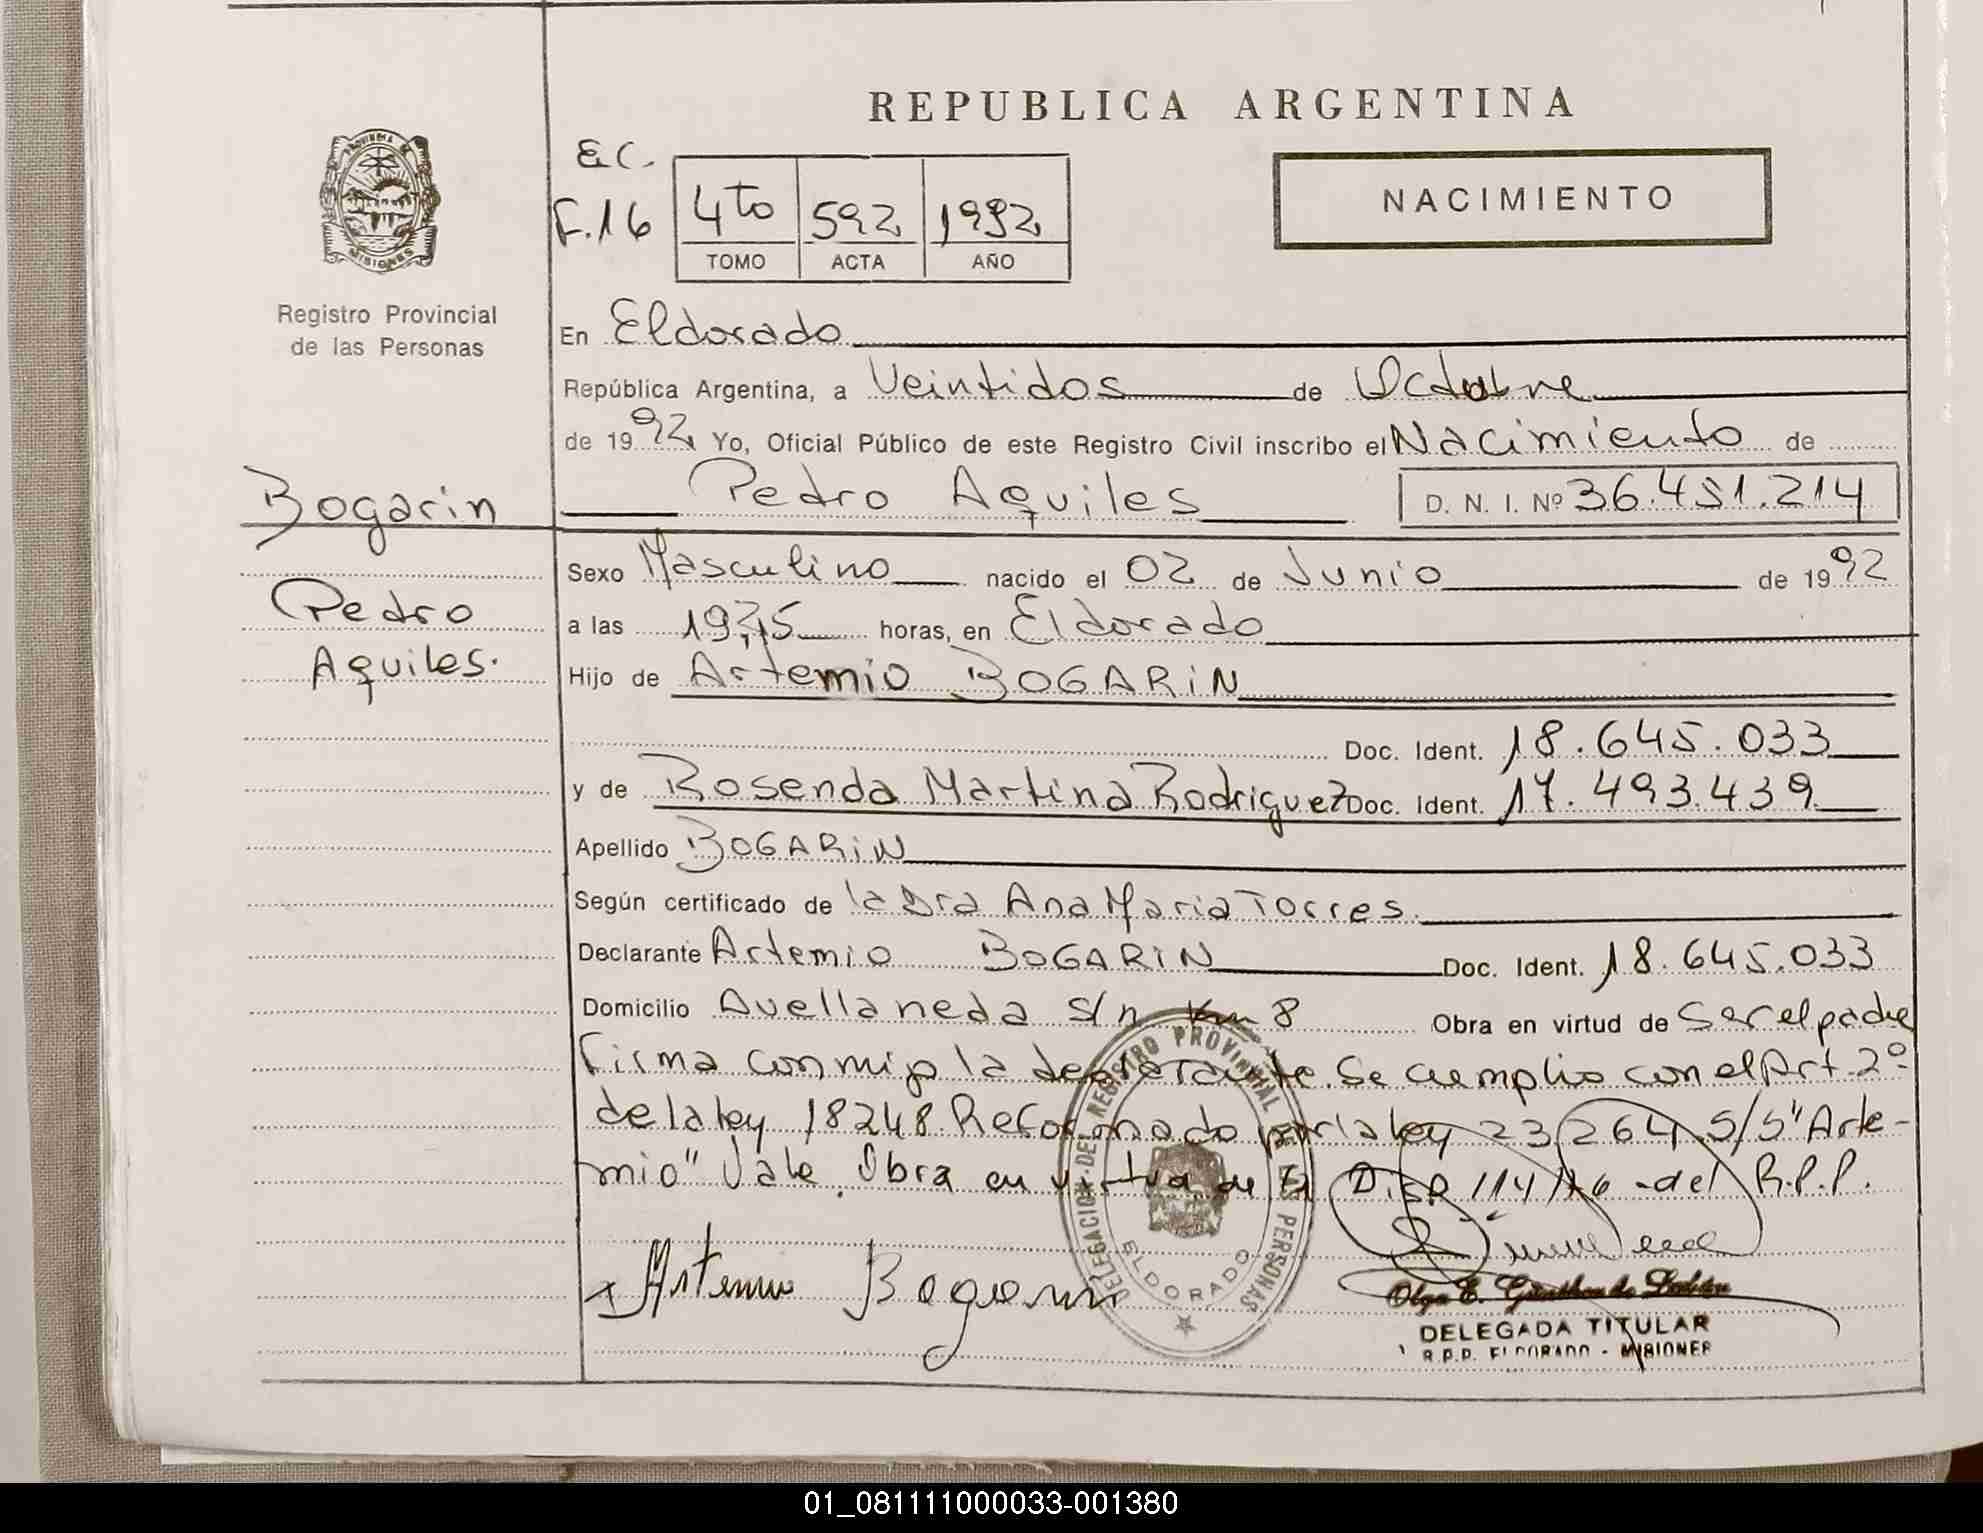 REPUBLICA ARGENTINA
NACIMIENTO
E.C.
F.16
4to 592 1992
TOMO ACTA AÑO
PROVINCIA DE
MISIONES
Registro Provincial
de las Personas
Bogarin
Pedro
Aquiles.
En Eldorado
República Argentina, a Veintidos de Octubre
de 1992 Yo, Oficial Público de este Registro Civil inscribo el Nacimiento de
Pedro Aquiles D. N. I. Nº 36.451.214
Sexo Masculino nacido el 02 de Junio de 1992
a las horas, en Eldorado
Hijo de Artemio BOGARIN
Doc. Ident. 18.645.033
y de Rosenda Martina Rodriguez Doc. Ident. 17.493.439
Apellido BOGARIN
Según certificado de la Dra Ana Maria Torres.
Declarante Artemio BOGARIN Doc. Ident. 18.645.033
Domicilio Avellaneda s/n Km 8 Obra en virtud de Ser el padre
Firma conmigo la declarante. Se cumplio con el Art. 2º
de la ley 18248 Reformado por la ley 23264 S/S "Arte-
mio" Vale. Obra en virtud de la Disp 114/ del R.P.P.
DELEGACION DEL REGISTRO PROVINCIAL DE PERSONAS
ELDORADO
Artemio Bogarin
Olga E.
DELEGADA TITULAR
R.P.P. ELDORADO - MISIONES
01_081111000033-001380